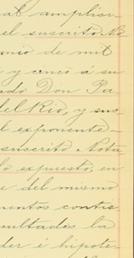 al amplian-
el suscrito No
unio de mil
y cinco á su
ado Don Ja
del Rio, y sus-
el exponente-
suscrito Nota
lo expuesto, en
e del mismo
mentos contra
cultades la
der é hipote-